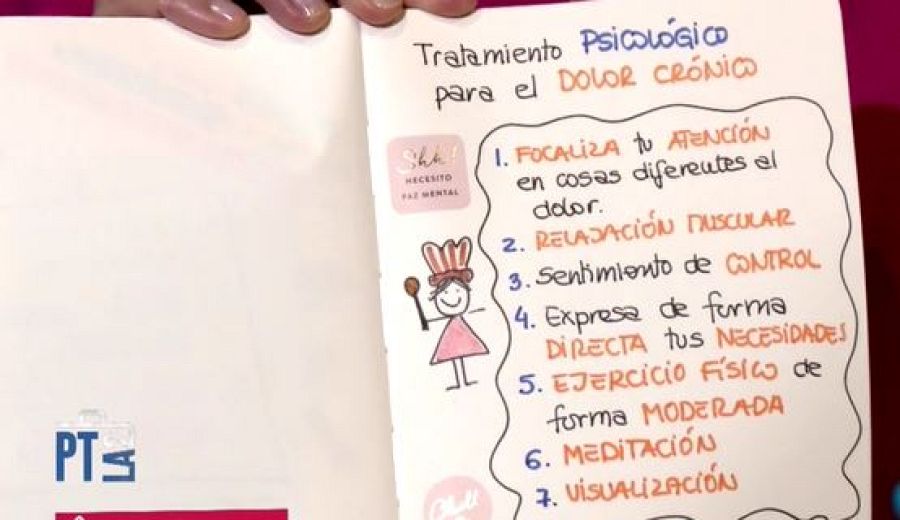 Tratamiento PSICOLÓGICO
para el DOLOR CRÓNICO
Shh!
NECESITO
PAZ MENTAL
1. FOCALIZA tu ATENCIÓN
en cosas diferentes al
dolor.
2. RELAJACIÓN MUSCULAR
3. Sentimiento de CONTROL
4. Expresa de forma
DIRECTA tus NECESIDADES
5. EJERCICIO FÍSICO de
forma MODERADA
6. MEDITACIÓN
7. VISUALIZACIÓN
PT
LA